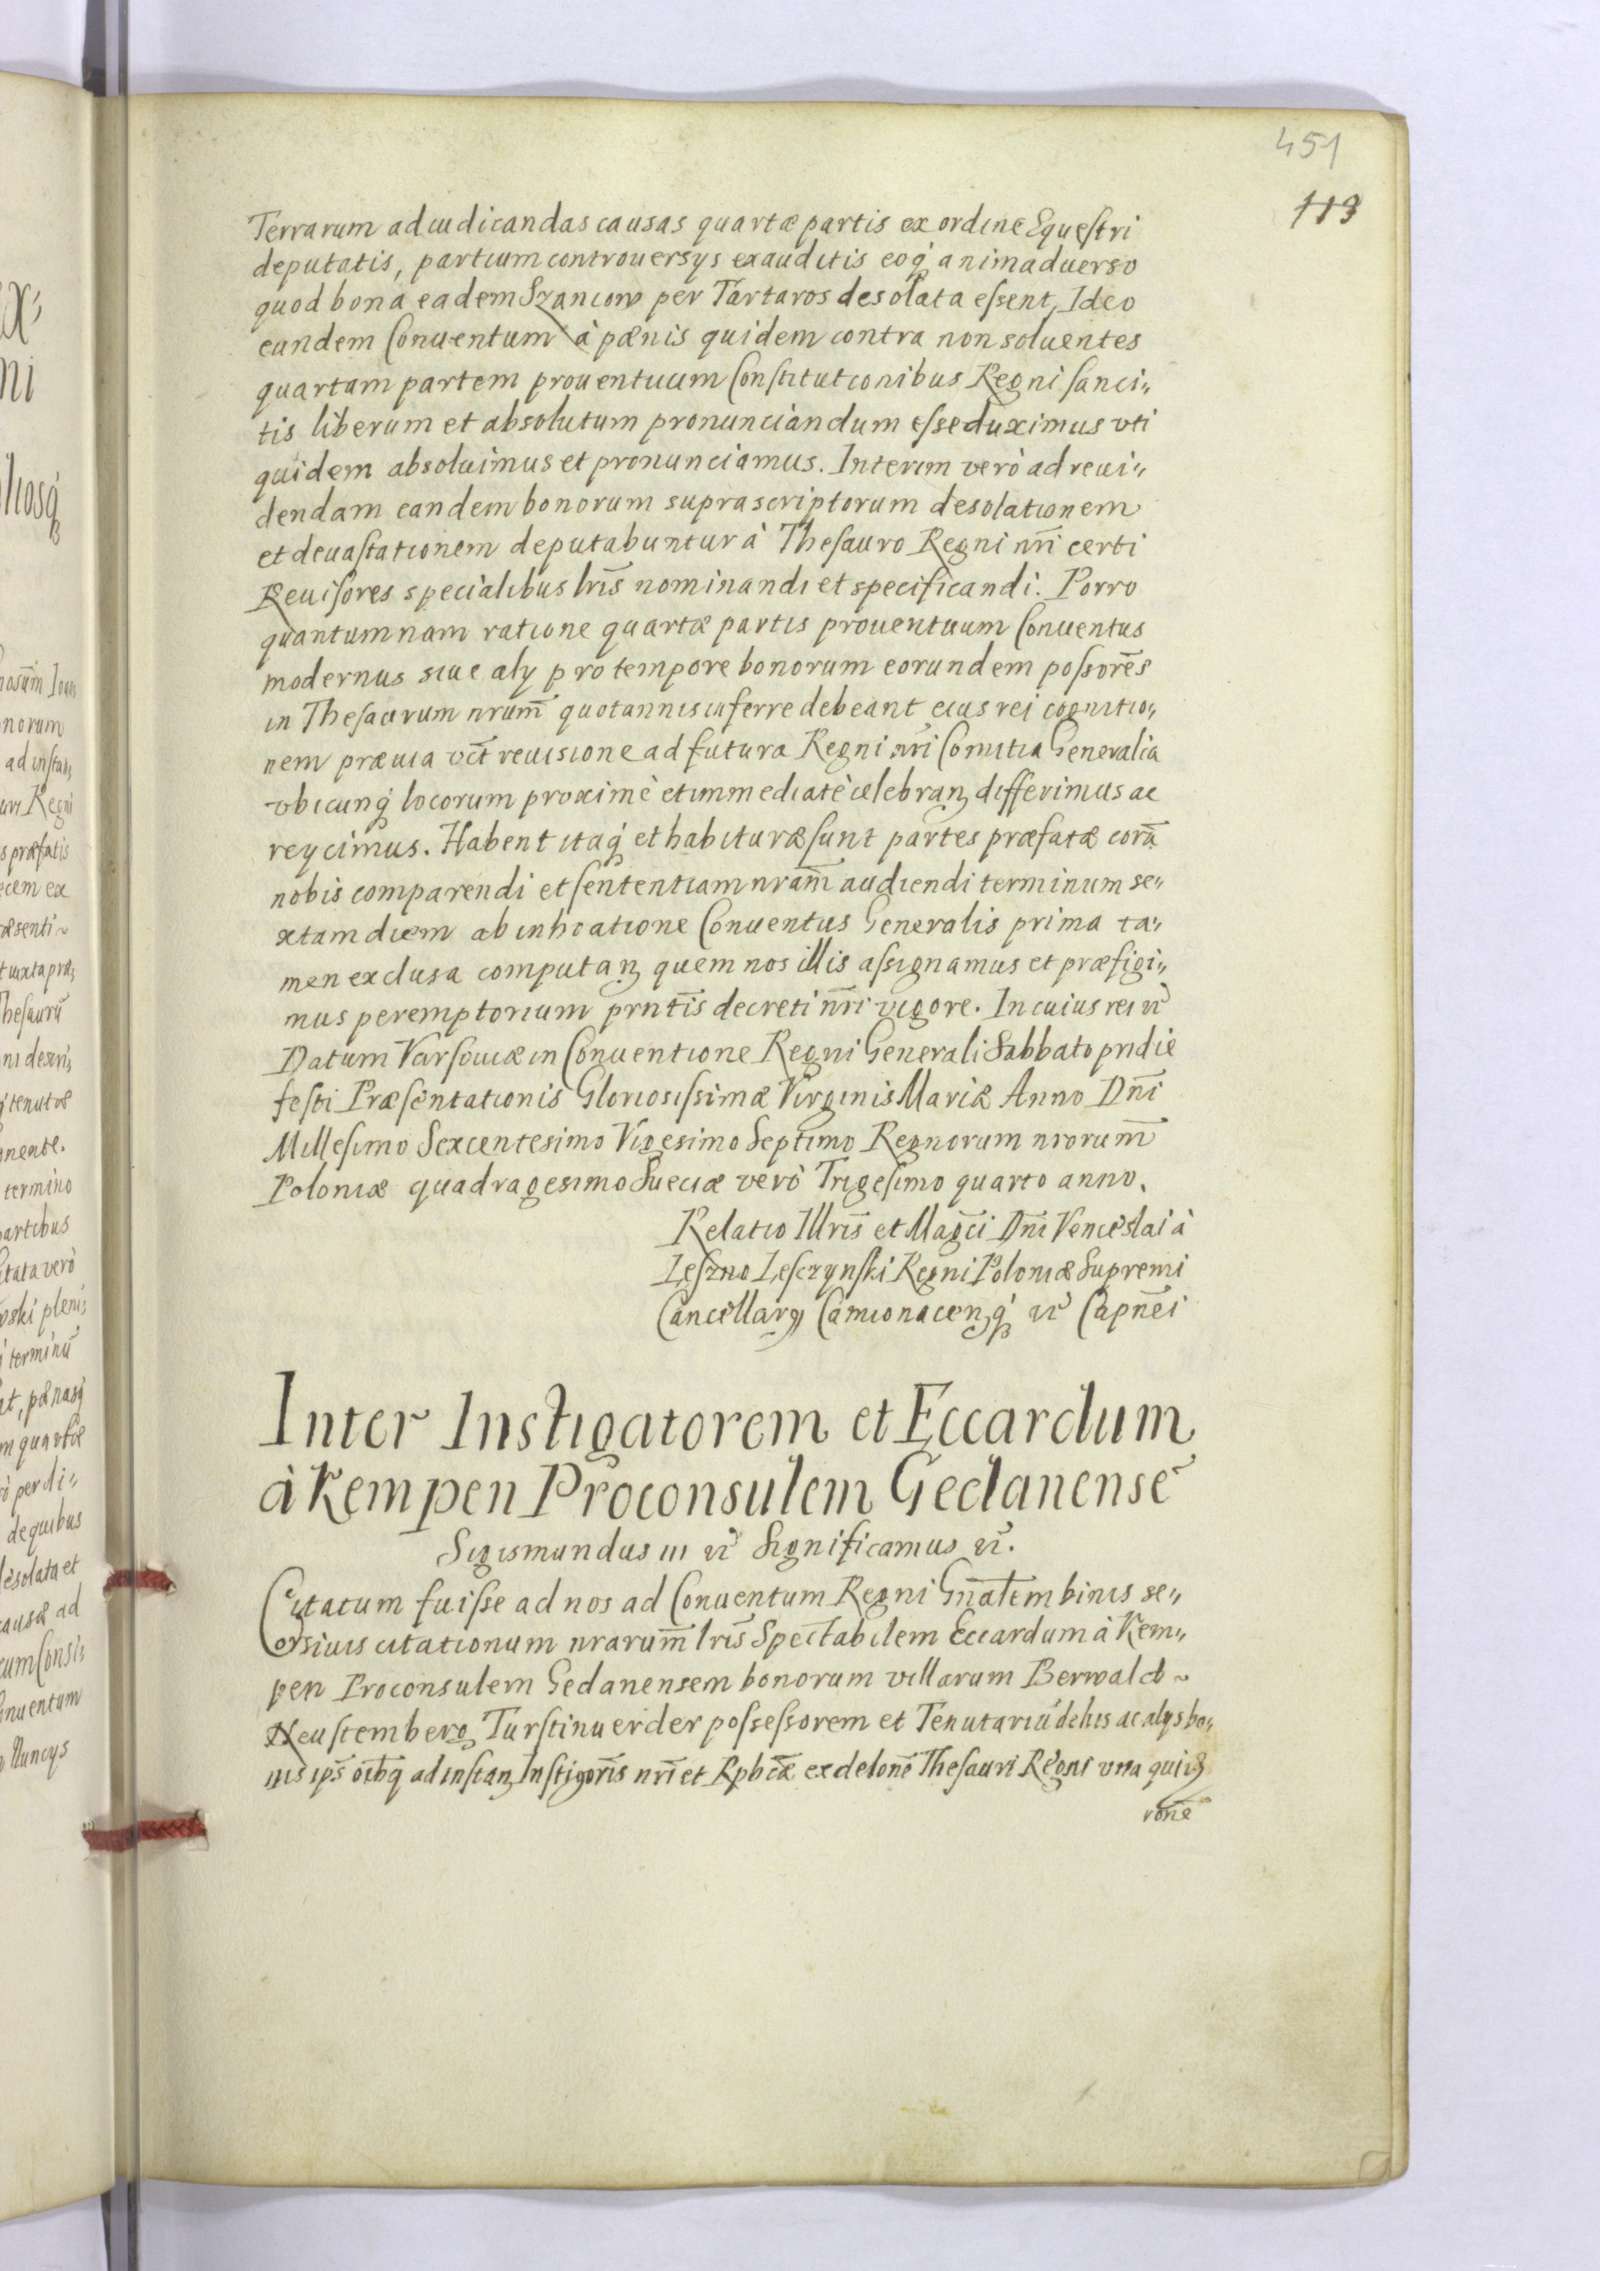 451
113
Terrarum ad iudicandas causas quartæ partis ex ordine Equestri
deputatis, partium controuersys exauditis eoq́ animaduerso
quod bona eadem Szancow per Tartaros desolata essent, Ideo
eundem Conuentum à pænis quidem contra non soluentes
quartam partem prouentuum Constitutionibus Regni sanci„
tis liberum et absolutum pronunciandum esse duximus vti
quidem absoluimus et pronunciamus. Interim verò ad reui„
dendam eandem bonorum suprascriptorum desolationem
et deuastationem deputabuntur à Thesauro Regni nr̃i certi
Reuisores specialibus lr̃is nominandi et specificandi. Porro
quantumnam ratione quartæ partis prouentuum Conuentus
modernus siue aly pro tempore bonorum eorundem possores̃
in Thesaurum nrum̃ quotannis inferre debeant eius rei cognitio„
nem præuia vt̃ reuisione ad futura Regni nr̃i Comitia Generalia
vbicunq́ locorum proximè et immediatè celebranꝫ differimus ac
reycimus. Habent itaq́ et habituræ sunt partes præfatæ corã
nobis comparendi et sententiam nram̃ audiendi terminum se„
xtam diem ab inhoatione Conuentus Generalis prima ta„
men exclusa computanꝫ quem nos illis assignamus et præfigi„
mus peremptorium prntis̃ decreti nr̃i vigore. In cuius rei &c
Datum Varsouiæ in Conuentione Regni Generali Sabbato pridie
festi Præsentationis Gloriosissimæ Virginis Mariæ Anno Dñi
Millesimo Sexcentesimo Vigesimo Septimo Regnorum nrorum̃
Poloniæ quadragesimo Sueciæ verò Trigesimo quarto anno.
Relatio Illris̃ et Mag̃ci Dñi Venceslai à
Leszno Lesczynski Regni Poloniæ Supremi
Cancellary Camionacenꝫq́ &c Capnẽi
Inter Instigatorem et Eccardum
à Kempen Proconsulem Gedanensẽ
Sigismundus III &c Significamus &c.
Citatum fuisse ad nos ad Conuentum Regni Gñalem binis se„
orsiuis citationum nrarum̃ lris̃ Spectabilem Eccardum à Kem„
pen Proconsulem Gedanensem bonorum villarum Berwalct~
Neustemberg Turstinuerder possessorem et Tenutariũ de his ac alys bo„
nis ips̃ oib̃q ad instanꝫ Instigoris̃ nr̃i et Rpbcæ̃ ex delonẽ Thesauri Regni vna
ronẽ